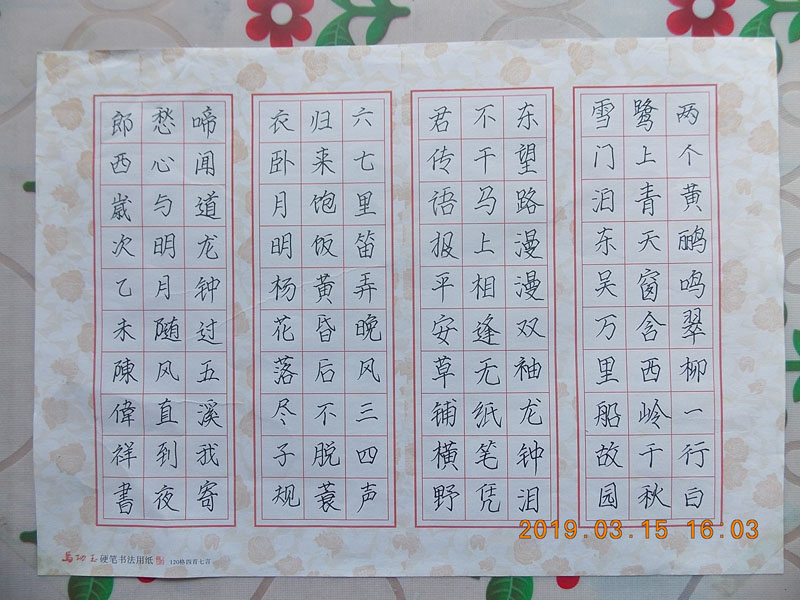 两个黄鹂鸣翠柳一行白
鹭上青天窗含西岭千秋
雪门泊东吴万里船故园
东望路漫漫双袖龙钟泪
不干马上相逢无纸笔凭
君传语报平安草铺横野
六七里笛弄晚风三四声
归来饱饭黄昏后不脱蓑
衣卧月明杨花落尽子规
啼闻道龙钟过五溪我寄
愁心与明月随风直到夜
郎西嵗次乙未陳偉祥書
硬笔书法用纸 120格四首七言
2019.03.15 16.03